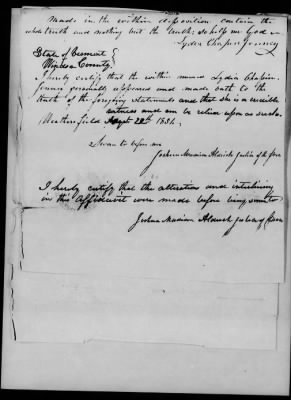 made in the within deposition contain the
whole truth and nothing but the truth; so help me God
Lydia Chapin Jenney
State of Vermont }
Windsor County }
I hereby certify that the within named Lydia Chapin
Jenney personally appeared and made oath to the
truth of the foregoing statements and that she is a credible
witness and can be relied upon as such
Weathersfield Sept 22d 1851.
Sworn to before me
Joshua Madison Aldrich Justice of the Peace
I hereby certify that the alteration and interlining
in this Affidavit were made before being sworn to
Joshua Madison Aldrich Justice of Peace